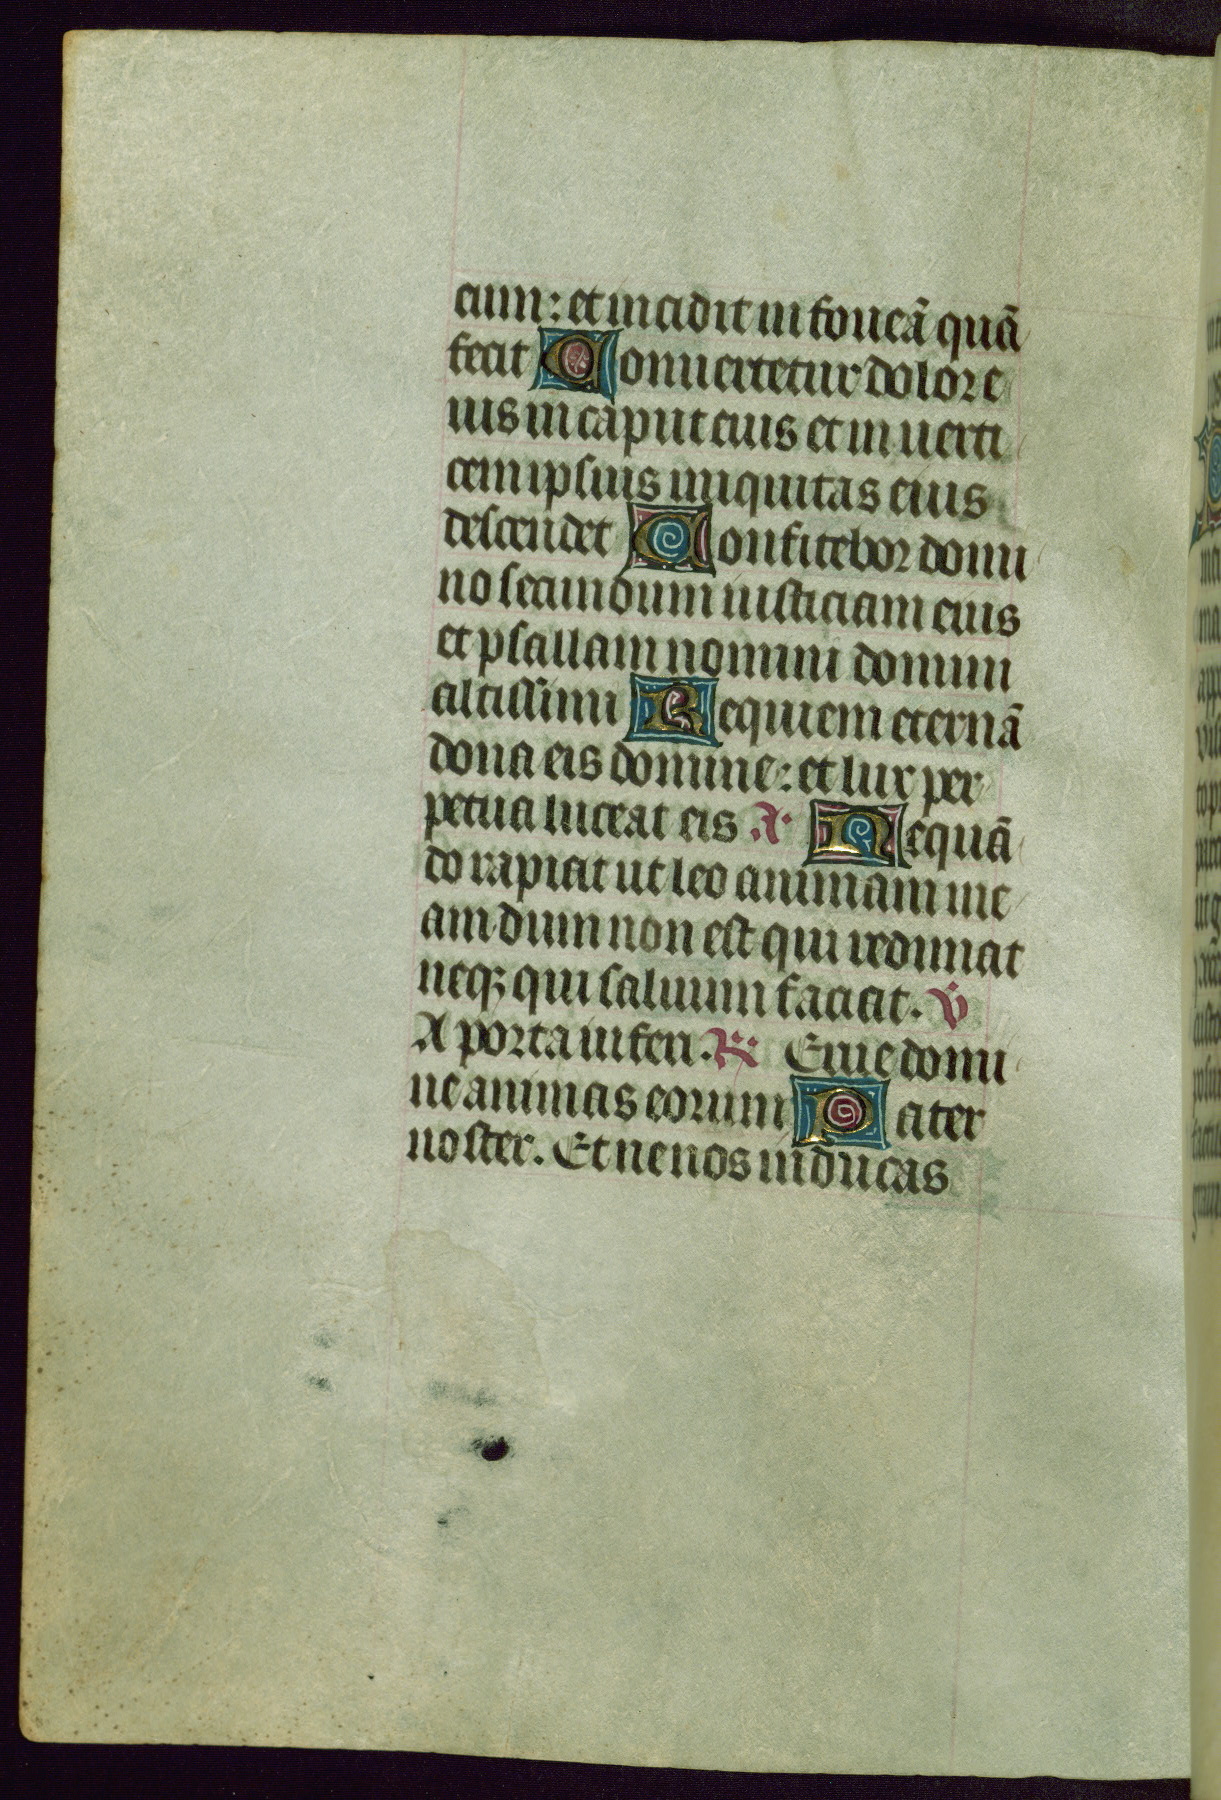 eum: et incidit in foueā quā
fecit Conuertetur dolor e
ius in caput eius et in uerti
cem ipsius iniquitas eius
descendet Confitebor domi
no secundum iusticiam eius
et psallam nomini domini
altissimi Requiem eternā
dona eis domine: et lux per
petua luceat eis A Nequā
do rapiat ut leo animam me
am dum non est qui redimat
neqꝫ qui saluum faciat. V
A porta inferi. R Erue domi
ne animas eorum Pater
noster. Et ne nos inducas